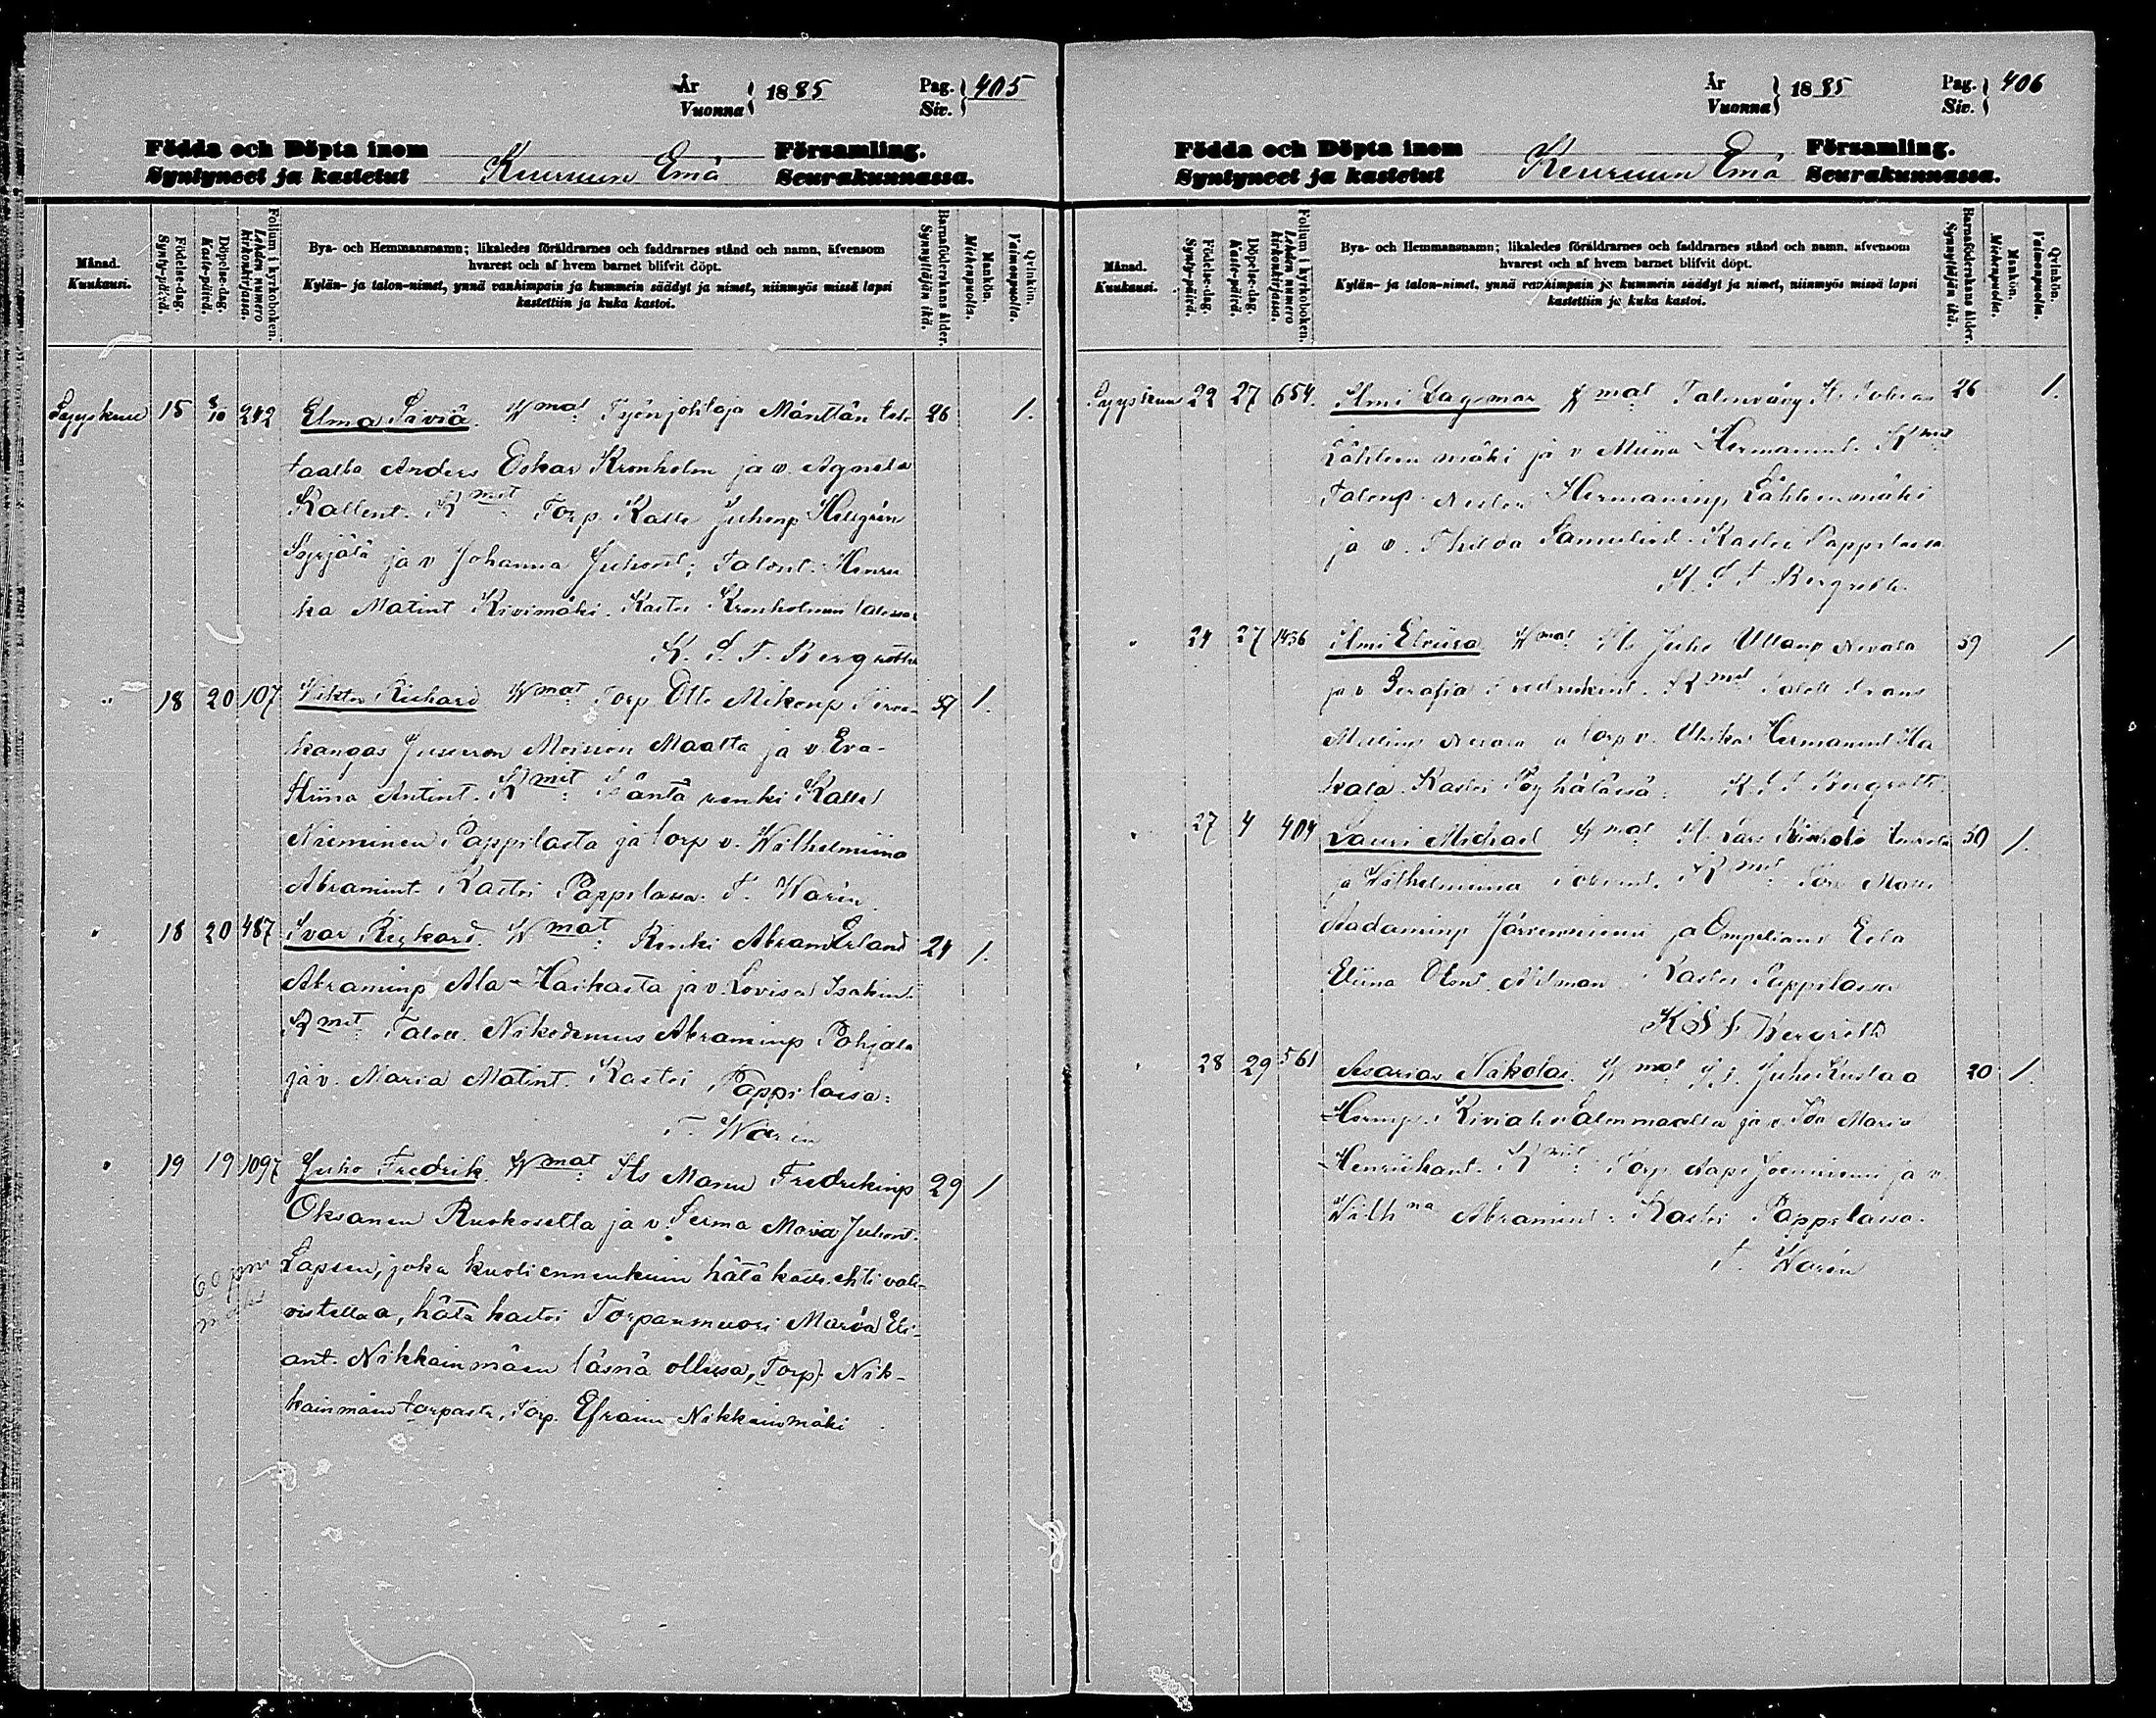 År
Vuonna 1885 Pag. Siv. 405
Födda och Döpta inom Församling.
Syntyneet ja kastetut Keuruun Emä Seurakunnassa.
Månad.
Kuukausi.
Födelse-dag.
Synty-päivä.
Döpelse-dag.
Kaste-päivä.
Folium i kyrkoboken.
Lehden numero kirkonkirjassa.
Bya- och Hemmansnamn; likaledes föräldrarnes och faddrarnes stånd och namn, äfvensom
hvarest och af hvem barnet blifvit döpt.
Kylän- ja talon-nimet, ynnä vanhimpain ja kummein säädyt ja nimet, niinmyös missä lapsi
kastettiin ja kuka kastoi.
Barnaföderskans ålder.
Synnyttäjän ikä.
Mankön.
Miehenpuolia.
Qvinkön.
Vaimonpuolia.
Syyskuu 15 8/10 242 Elma Saviä. Wmat Työnjohtaja Mänttän teh- 26 1.
taalta Anders Oskar Kronholm ja v. Agneta
Kallent. Kmit Torp. Kalle Juhonp Hellgrén
Syrjälä ja v Johanna Juhont; Talont. Henri
ka Matint Kivimäki. Kastoi Kronholmin talossa
K. S. F. Bergroth
" 18 20 107 Viktor Richard Wmat Torp Otto Mikonp 37 1.
kangas Jusunon Moision Maalta ja v. Eva-
Stiina Antint. Kmit: Isäntä renki Kalle
Nieminen Pappilasta ja torp v. Wilhelmiina
Abramint. Kastoi Pappilassa. F. Warén
" 18 20 487 Ivar Rickard. Wmat: Renki Abram Erland 24 1.
Abraminp Ala-Haikasta ja v. Lovisa Isakint.
Kmit Taloll. Nikodemus Abraminp Pohjala
ja v. Maria Matint. Kastoi Pappilassa:
F. Warén
" 19 19 1097 Juho Fredrik. Wmat Its Manu Fredrikinp 29 1
Oksanen Ruokoselta ja v. Serma Maria Juhont.
Lapsen, joka kuoli ennenkuin hätäkaste ehti vah-
vistettaa, hätä kastoi Torpanmuori Maria Eli-
ant. Nikkainmäen läsnä ollessa, Torp. Nik-
kainmäen torpasta, Torp. Efraim Nikkainmäki
År
Vuonna 1885 Pag. Siv. 406
Födda och Döpta inom Församling.
Syntyneet ja kastetut Keuruun Emä Seurakunnassa.
Månad.
Kuukausi.
Födelse-dag.
Synty-päivä.
Döpelse-dag.
Kaste-päivä.
Folium i kyrkoboken.
Lehden numero kirkonkirjassa.
Bya- och Hemmansnamn; likaledes föräldrarnes och faddrarnes stånd och namn, äfvensom
hvarest och af hvem barnet blifvit döpt.
Kylän- ja talon-nimet, ynnä vanhimpain ja kummein säädyt ja nimet, niinmyös missä lapsi
kastettiin ja kuka kastoi.
Barnaföderskans ålder.
Synnyttäjän ikä.
Mankön.
Miehenpuolia.
Qvinkön.
Vaimonpuolia.
Syyskuu 22 27 654. Ilmi Dagmar Wmat Talonvävy 26 1.
Lähteenmäki ja v Miina Hermanint. Kmit
Talonp. Nestor Hermaninp. Lähteenmäki
ja v. Thilda Samulint. Kastoi Pappilassa
K. S. F. Bergroth.
" 24 27 1436 Ilmi Elviira Wmat Its Juho Ullanp Nevala 39 1
ja v Serafia Fredrikint. Kmit Taloll Frans
Nevala ja torp v. Ulrika Hermanint Ha
kala. Kastoi Pöyhölässä. K. S. F. Bergroth.
" 27 4 404 Lauri Michael Wmat 30 1.
ja Wilhelmiina Kmit Torp Matti
Aadaminp Järvenniemi ja Ompelians Eela
Eliina Nilman Kastoi Pappilassa
K S F Bergroth
" 28 29 561 Asarias Nikolai. Wmat Juho Kustaa 20 1.
Hermp. Kiviaho ja v. Ida Maria
Henriikant. Kmit Torp Aape Joenniemi ja v.
Wilhna Abramint. Kastoi Pappilassa.
F. Warén